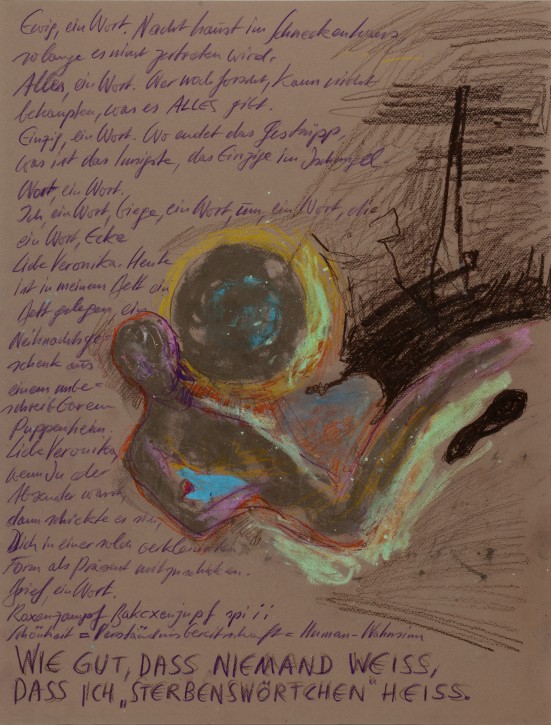 Ewig, ein Wort. Nacht haust im Schneckenhaus
solange es nicht zertreten wird.
Alles, ein Wort. Wer noch forscht, kann nicht
behaupten, was es ALLES gibt.
Einzig, ein Wort. Wo endet das Gestrüpp,
was ist das das Einzige im Dschungel
Wort, ein Wort.
Ich, ein Wort, liege, ein Wort, um, ein Wort, die
ein Wort, Ecke
Liebe Veronika. Heute
ist in meinem Bett ein
Bett gelegen, ein
Weihnachtsge-
schenk aus
einem unbe-
schreibbaren
Puppenheim.
Liebe Veronika,
wenn Du der
Absender warst,
dann schickte es sich
Dich in einer solch verkleinerten
Form als Präsent mitzuschicken.
Brief, ein Wort.
Schönheit = Verständnisbereitschaft = Human-Wahnsinn
WIE GUT, DASS NIEMAND WEISS,
DASS ICH „STERBENSWÖRTCHEN" HEISS.